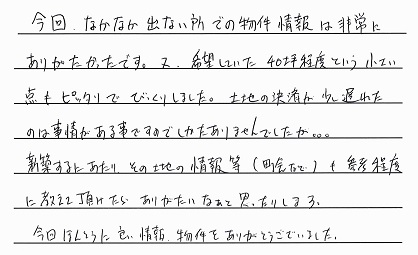 今回、なかなか出ない所での物件情報は非常に
ありがたかったです。又、希望していた40坪程度という
点もピッタリでびっくりしました。土地の決済が少し遅れた
のは事情がある事ですのでしかたありませんでしたが。。。
新築するにあたり、その土地の情報等(町会など)も参考程度
に教えて頂けたら ありがたいなぁと思ったりします。
今回ほんとうに良い情報、物件をありがとうございました。